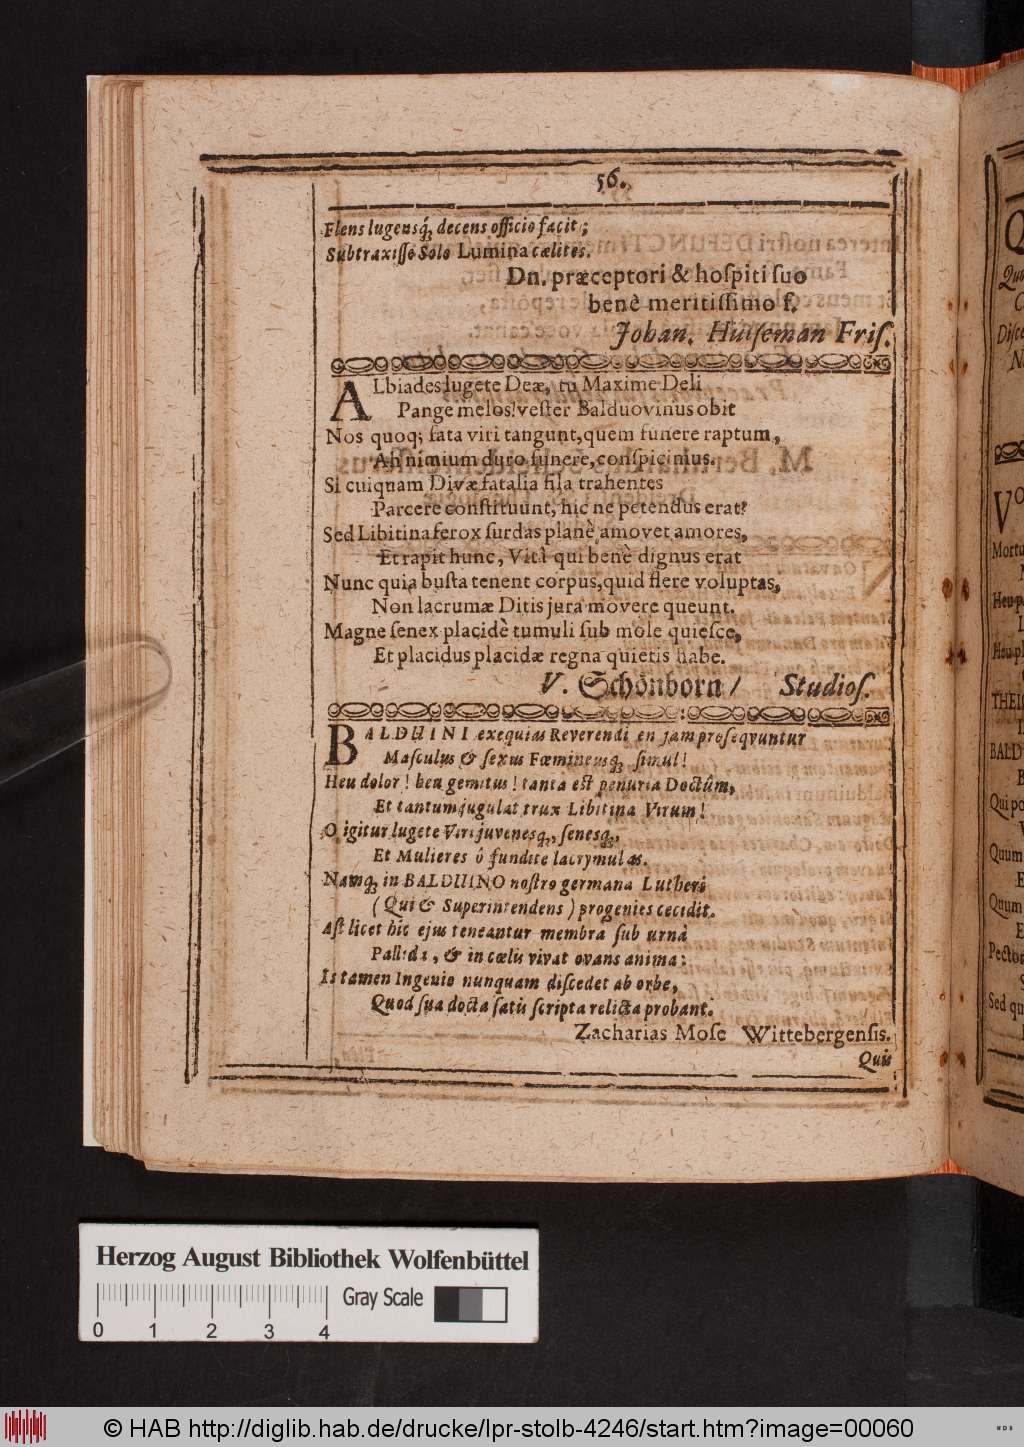 56.
Flens lugensq́; decens officio facit;
Subtraxisse Solo Lumina cælites.
Dn. præceptori & hoſpiti ſuo
benè meritiſſimo f.
Johan. Huiſeman Friſ.
ALbiades lugete Deæ, tu Maxime Deli
Pange melos! veſter Balduovinus obit
Nos quoq; fata viri tangunt, quem funere raptum,
Ah nimium duro funere, conſpicimus.
Si cuiquam Divæ fatalia fila trahentes
Parcere conſtituunt, hic ne petendus erat?
Sed Libitina ferox ſurdas planè amovet amores,
Et rapit hunc, Vitâ qui benè dignus erat
Nunc quia buſta tenent corpus, quid flere voluptas,
Non lacrumæ Ditis jura movere queunt.
Magne ſenex placidè tumuli ſub mole quieſce,
Et placidus placidæ regna quietis habe.
V. Schönborn / Studioſ.
BALDUINI exequias Reverendi en jam proſeqvuntur
Maſculus & ſexus Fœmineusq; ſimul!
Heu dolor! heu gemitus! tanta eſt penuria Doctûm,
Et tantum jugulat trux Libitina Virum!
O igitur lugete Viri juvenesq;, ſenesq;,
Et Mulieres ô fundite lacrymulas.
Namq; in BALDUINO noſtro germana Lutheri
(Qui & Superintendens) progenies cecidit.
Aſt licet hic ejus teneantur membra ſub urnâ
Pallida, & in cœlis vivat ovans anima:
Is tamen Ingenio nunquam diſcedet ab orbe,
Quod ſua docta ſatis ſcripta relicta probant.
Zacharias Moſe Wittebergenſis.
Quis
Herzog August Bibliothek Wolfenbüttel
Gray Scale
0 1 2 3 4
© HAB http://diglib.hab.de/drucke/lpr-stolb-4246/start.htm?image=00060